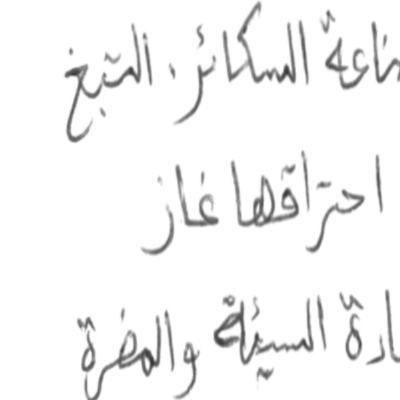 ناعة السكائر. التبغ
احتراقها غاز
ادة السيئة والمضرة